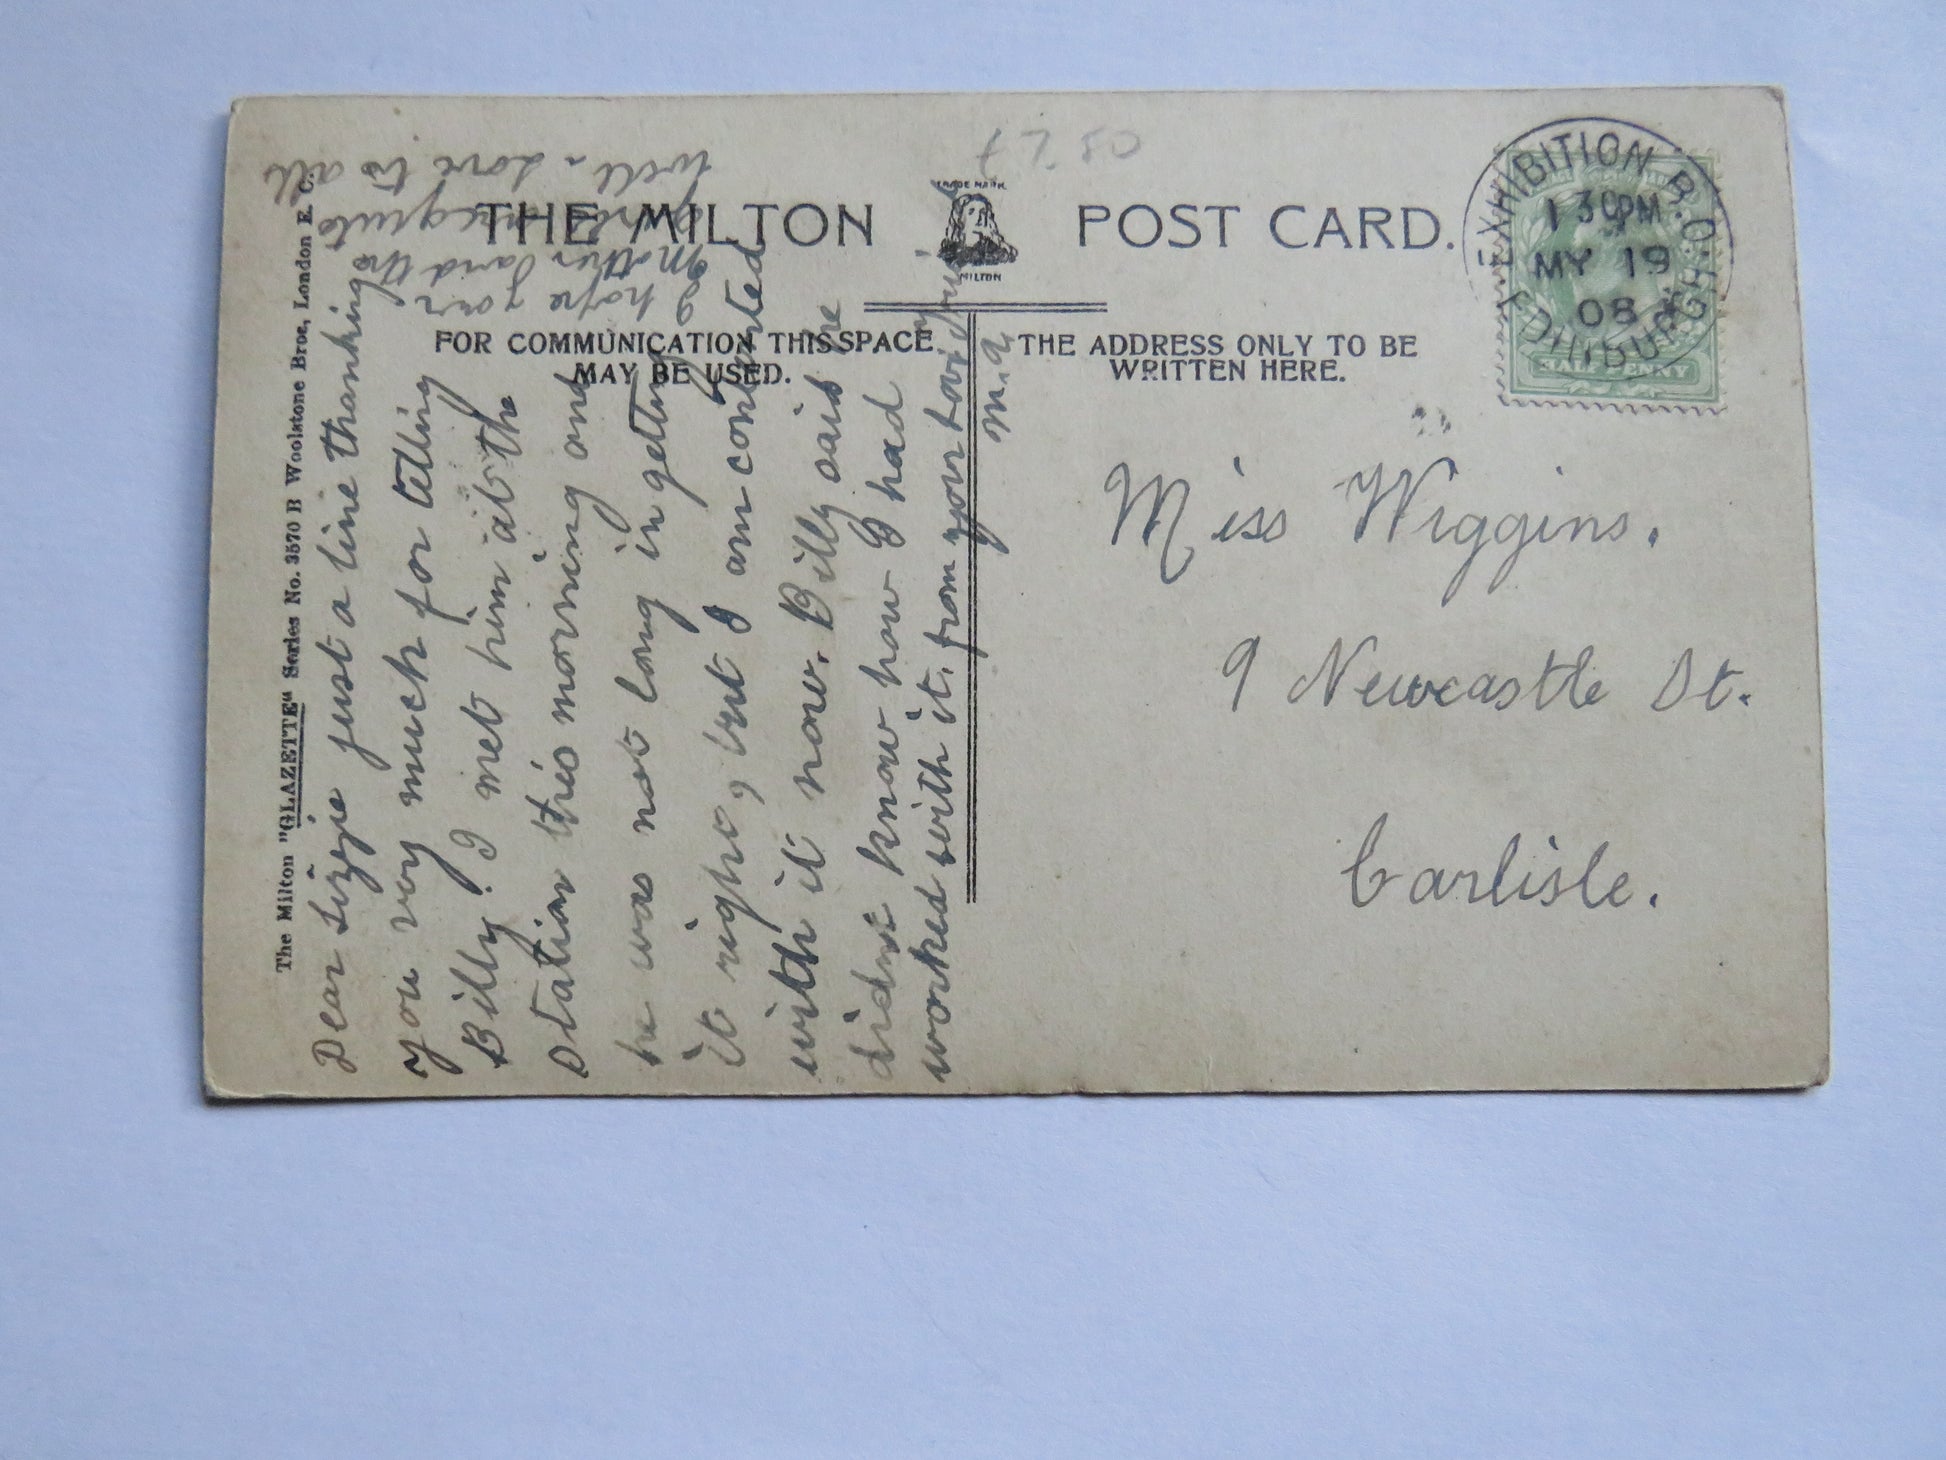 THE MILTON POST CARD.
TRADE MARK
MILTON
FOR COMMUNICATION THIS SPACE
MAY BE USED.
THE ADDRESS ONLY TO BE
WRITTEN HERE.
The Milton "GLAZETTE" Series No. 3570 B Woolstone Bros., London E. C.
EXHIBITION B.O.
1 30PM
MY 19
08
EDINBURGH
HALFPENNY
Dear Lizzie just a line thanking
you very much for telling
Billy. I met him at the
station this morning and
he was not long in geting
it right, but I am contented
with it now. Billy said he
didnt know how I had
worked with it. from your loving
M.A.
I hope your
Mother and the
are
well - Love to all
Miss Wiggins.
9 Newcastle St.
Carlisle.